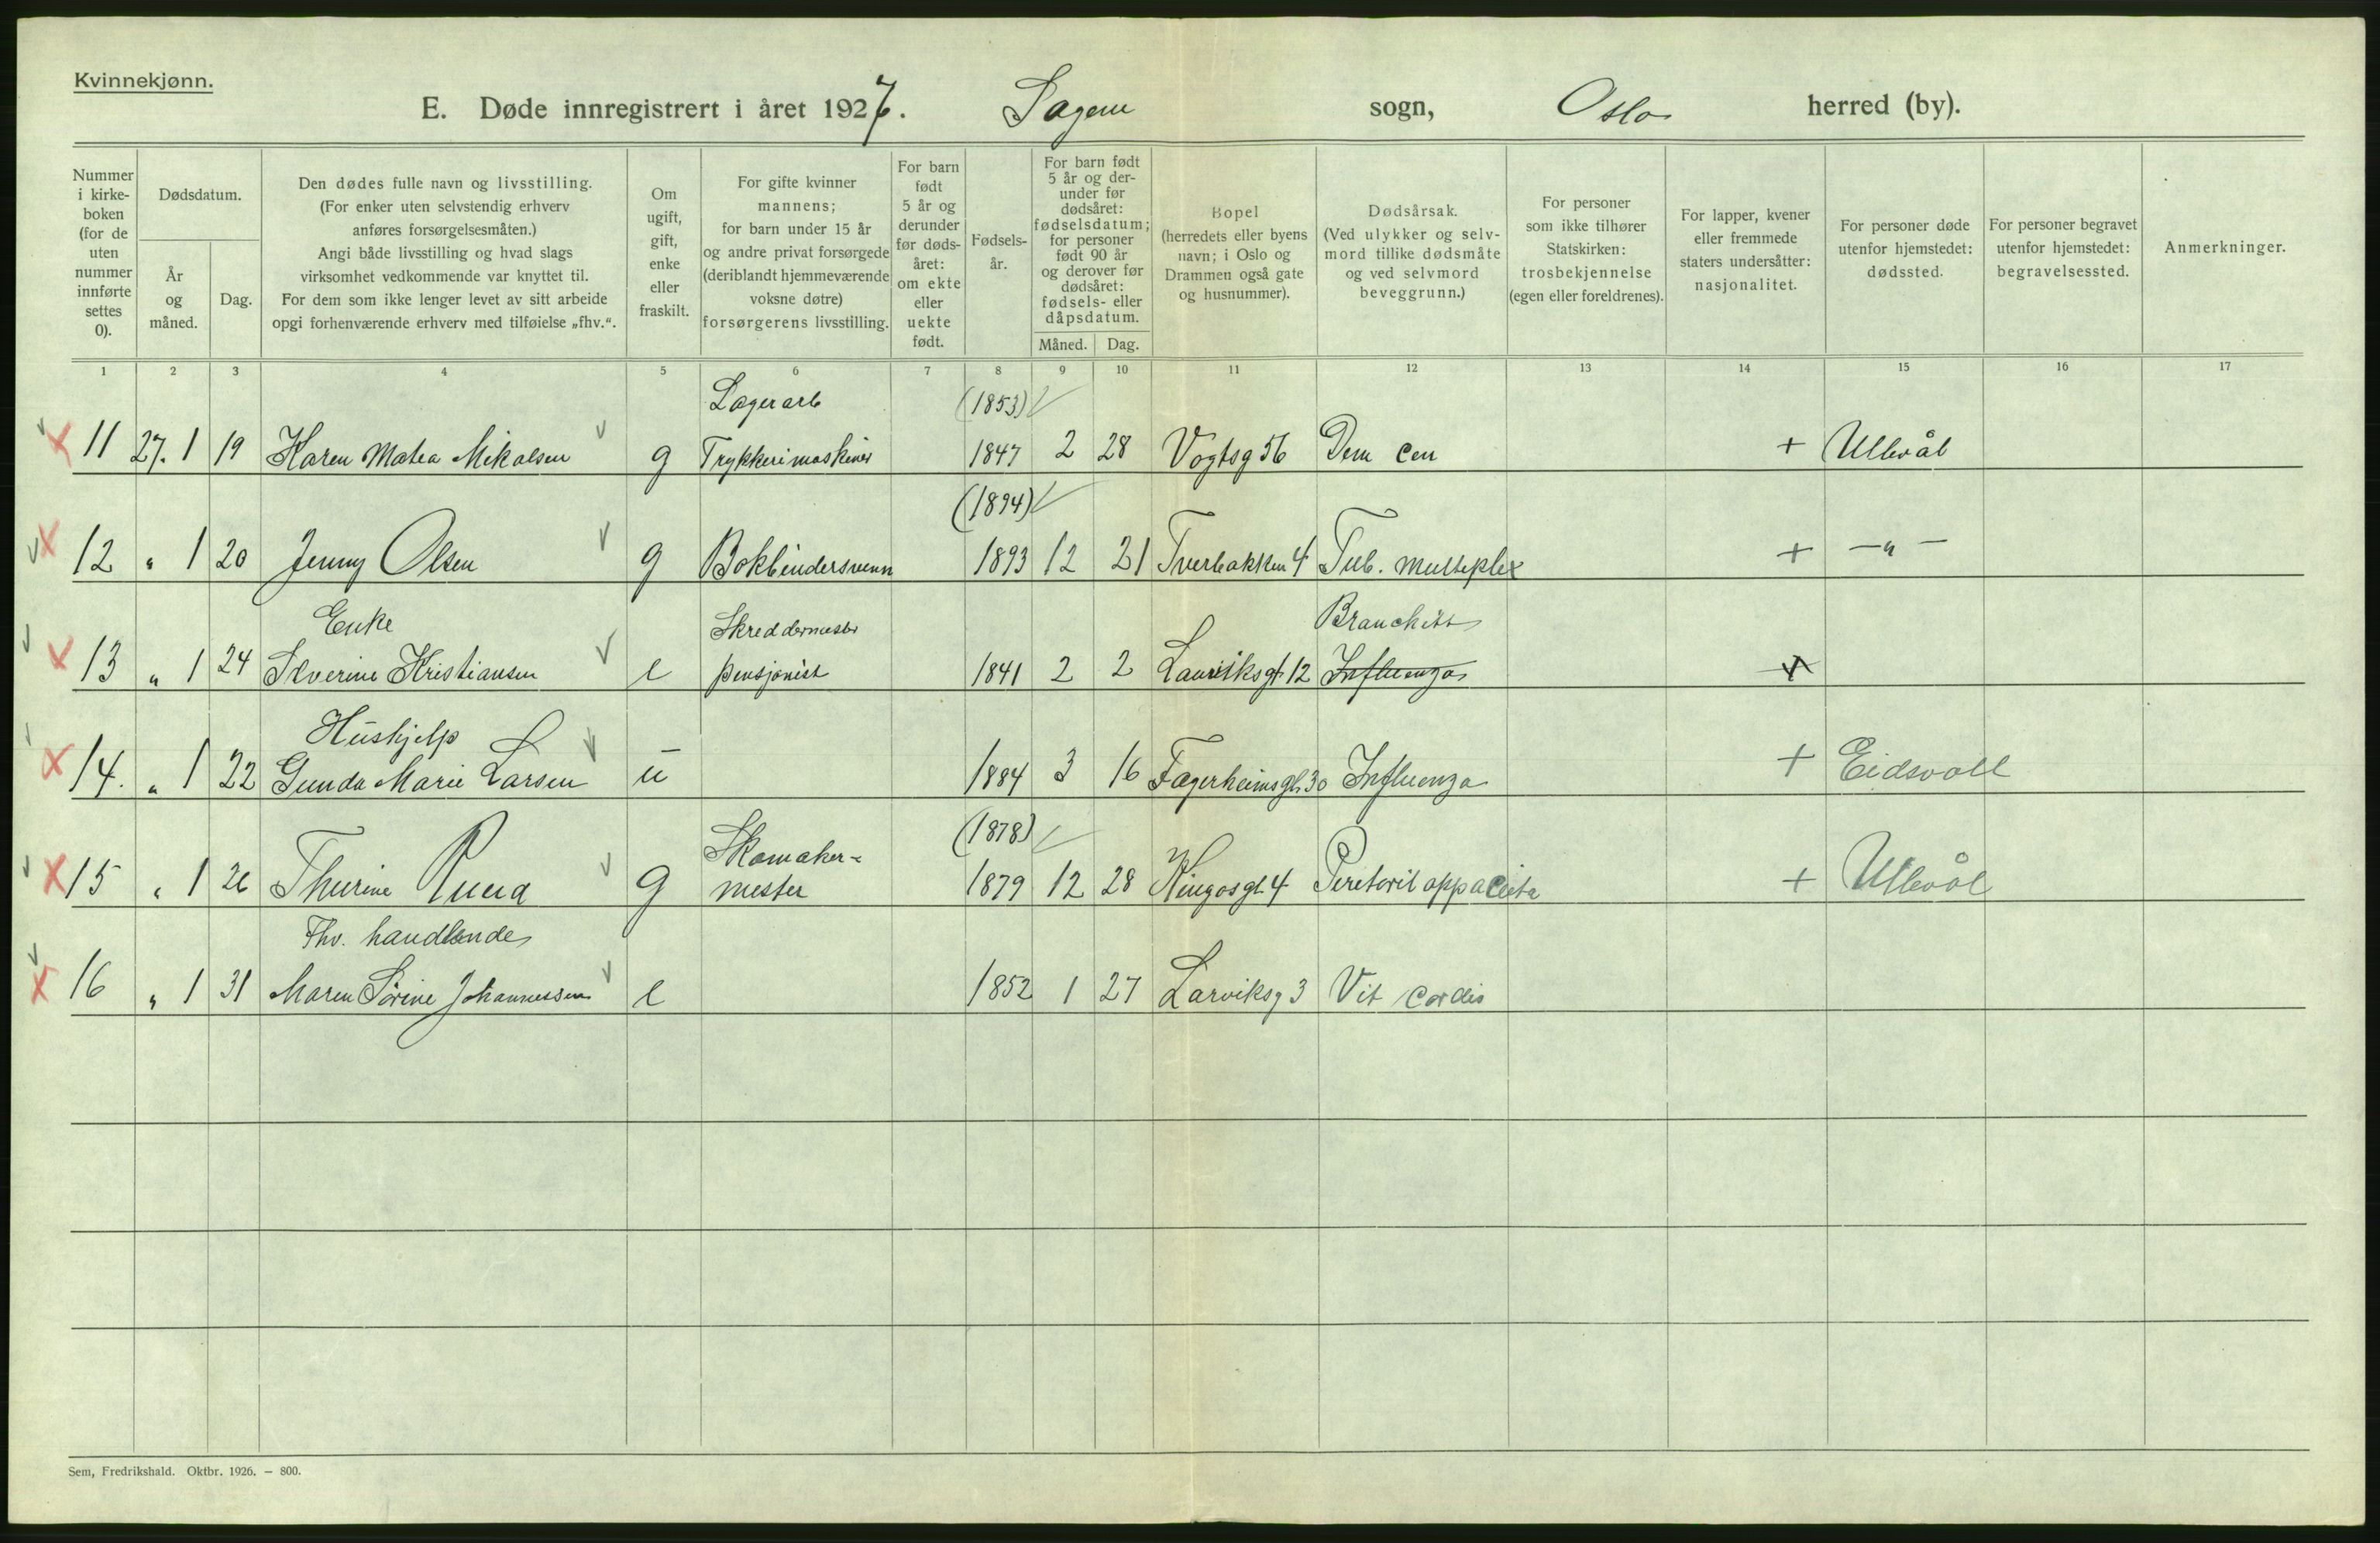 Kvinnekjønn.
E. Døde innregistrert i året 1927. Sagene sogn, Oslo herred (by).
Nummer i kirke-boken (for de uten nummer innførte settes 0).
Dødsdatum.
År og måned.
Dag.
Den dødes fulle navn og livsstilling. (For enker uten selvstendig erhverv anføres forsørgelsesmåten.) Angi både livsstilling og hvad slags virksomhet vedkommende var knyttet til. For dem som ikke lenger levet av sitt arbeide opgi forhenværende erhverv med tilføielse „fhv.“.
Om ugift, gift, enke eller fraskilt.
For gifte kvinner mannens; for barn under 15 år og andre privat forsørgede (deriblandt hjemmeværende voksne døtre) forsørgerens livsstilling.
For barn født 5 år og derunder før døds-året: om ekte eller uekte født.
Fødsels-år.
For barn født 5 år og der-under før dødsåret: fødselsdatum; for personer født 90 år og derover før dødsåret: fødsels- eller dåpsdatum.
Måned. Dag.
Bopel (herredets eller byens navn; i Oslo og Drammen også gate og husnummer).
Dødsårsak. (Ved ulykker og selv-mord tillike dødsmåte og ved selvmord beveggrunn.)
For personer som ikke tilhører Statskirken: trosbekjennelse (egen eller foreldrenes).
For lapper, kvener eller fremmede staters undersåtter: nasjonalitet.
For personer døde utenfor hjemstedet: dødssted.
For personer begravet utenfor hjemstedet: begravelsessted.
Anmerkninger.
1 2 3 4 5 6 7 8 9 10 11 12 13 14 15 16 17
Lagerarb (1853)
11 27. 1 19 Karen Matea Mikalsen g Trykkerimaskinist 1847 2 28 Vogtsg 56 Dem Cen + Ullevål
(1894)
12 " 1 20 Jenny Olsen g Bokbindersvenn 1893 12 21 Tverbakken 4 Tub. multiplex + — " —
Enke Skreddermester Bronchitt
13 " 1 24 Severine Kristiansen e pensjonist 1841 2 2 Laurviksgt 12 Influenza
Hushjelp
14. " 1 22 Gunda Marie Larsen u 1884 3 16 Fagerheimsgt 30 Influenza + Eidsvoll
Skomaker- (1878)
15 " 1 26 Thurine Ruud g mester 1879 12 28 Kingosgt 4 + Ullevål
Fhv. handlende
16 " 1 31 Maren Sørine Johannessen e 1852 1 27 Larviksg 3 Vit cordis
Sem, Fredrikshald. Oktbr. 1926. — 800.